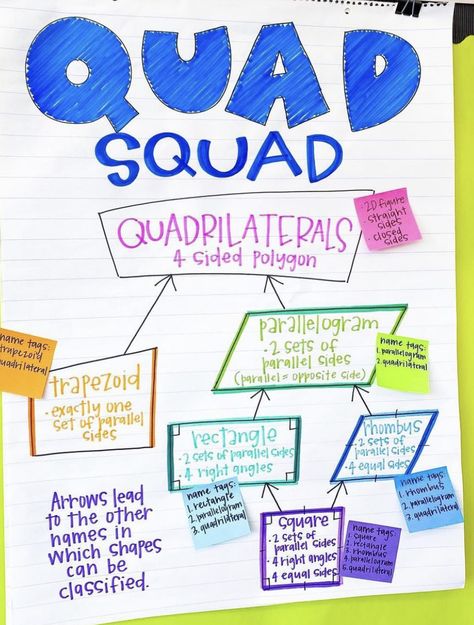 QUAD
SQUAD
QUADRILATERALS
4 sided polygon
• 2D figure
• straight
sides
• closed
sides
name tags:
trapezoid
quadrilateral
trapezoid
• exactly one
set of parallel
sides
parallelogram
• 2 sets of
parallel sides
(parallel = opposite side)
name tags:
1. parallelogram
2. quadrilateral
rectangle
• 2 sets of parallel sides
• 4 right angles
name tags:
1. rectangle
2. parallelogram
3. quadrilateral
rhombus
• 2 sets of
parallel sides
• 4 equal sides
name tags:
1. rhombus
2. parallelogram
3. quadrilateral
square
• 2 sets of
parallel sides
• 4 right angles
• 4 equal sides
name tags:
1. square
2. rectangle
3. rhombus
4. parallelogram
5. quadrilateral
Arrows lead
to the other
names in
which shapes
can be
classified.